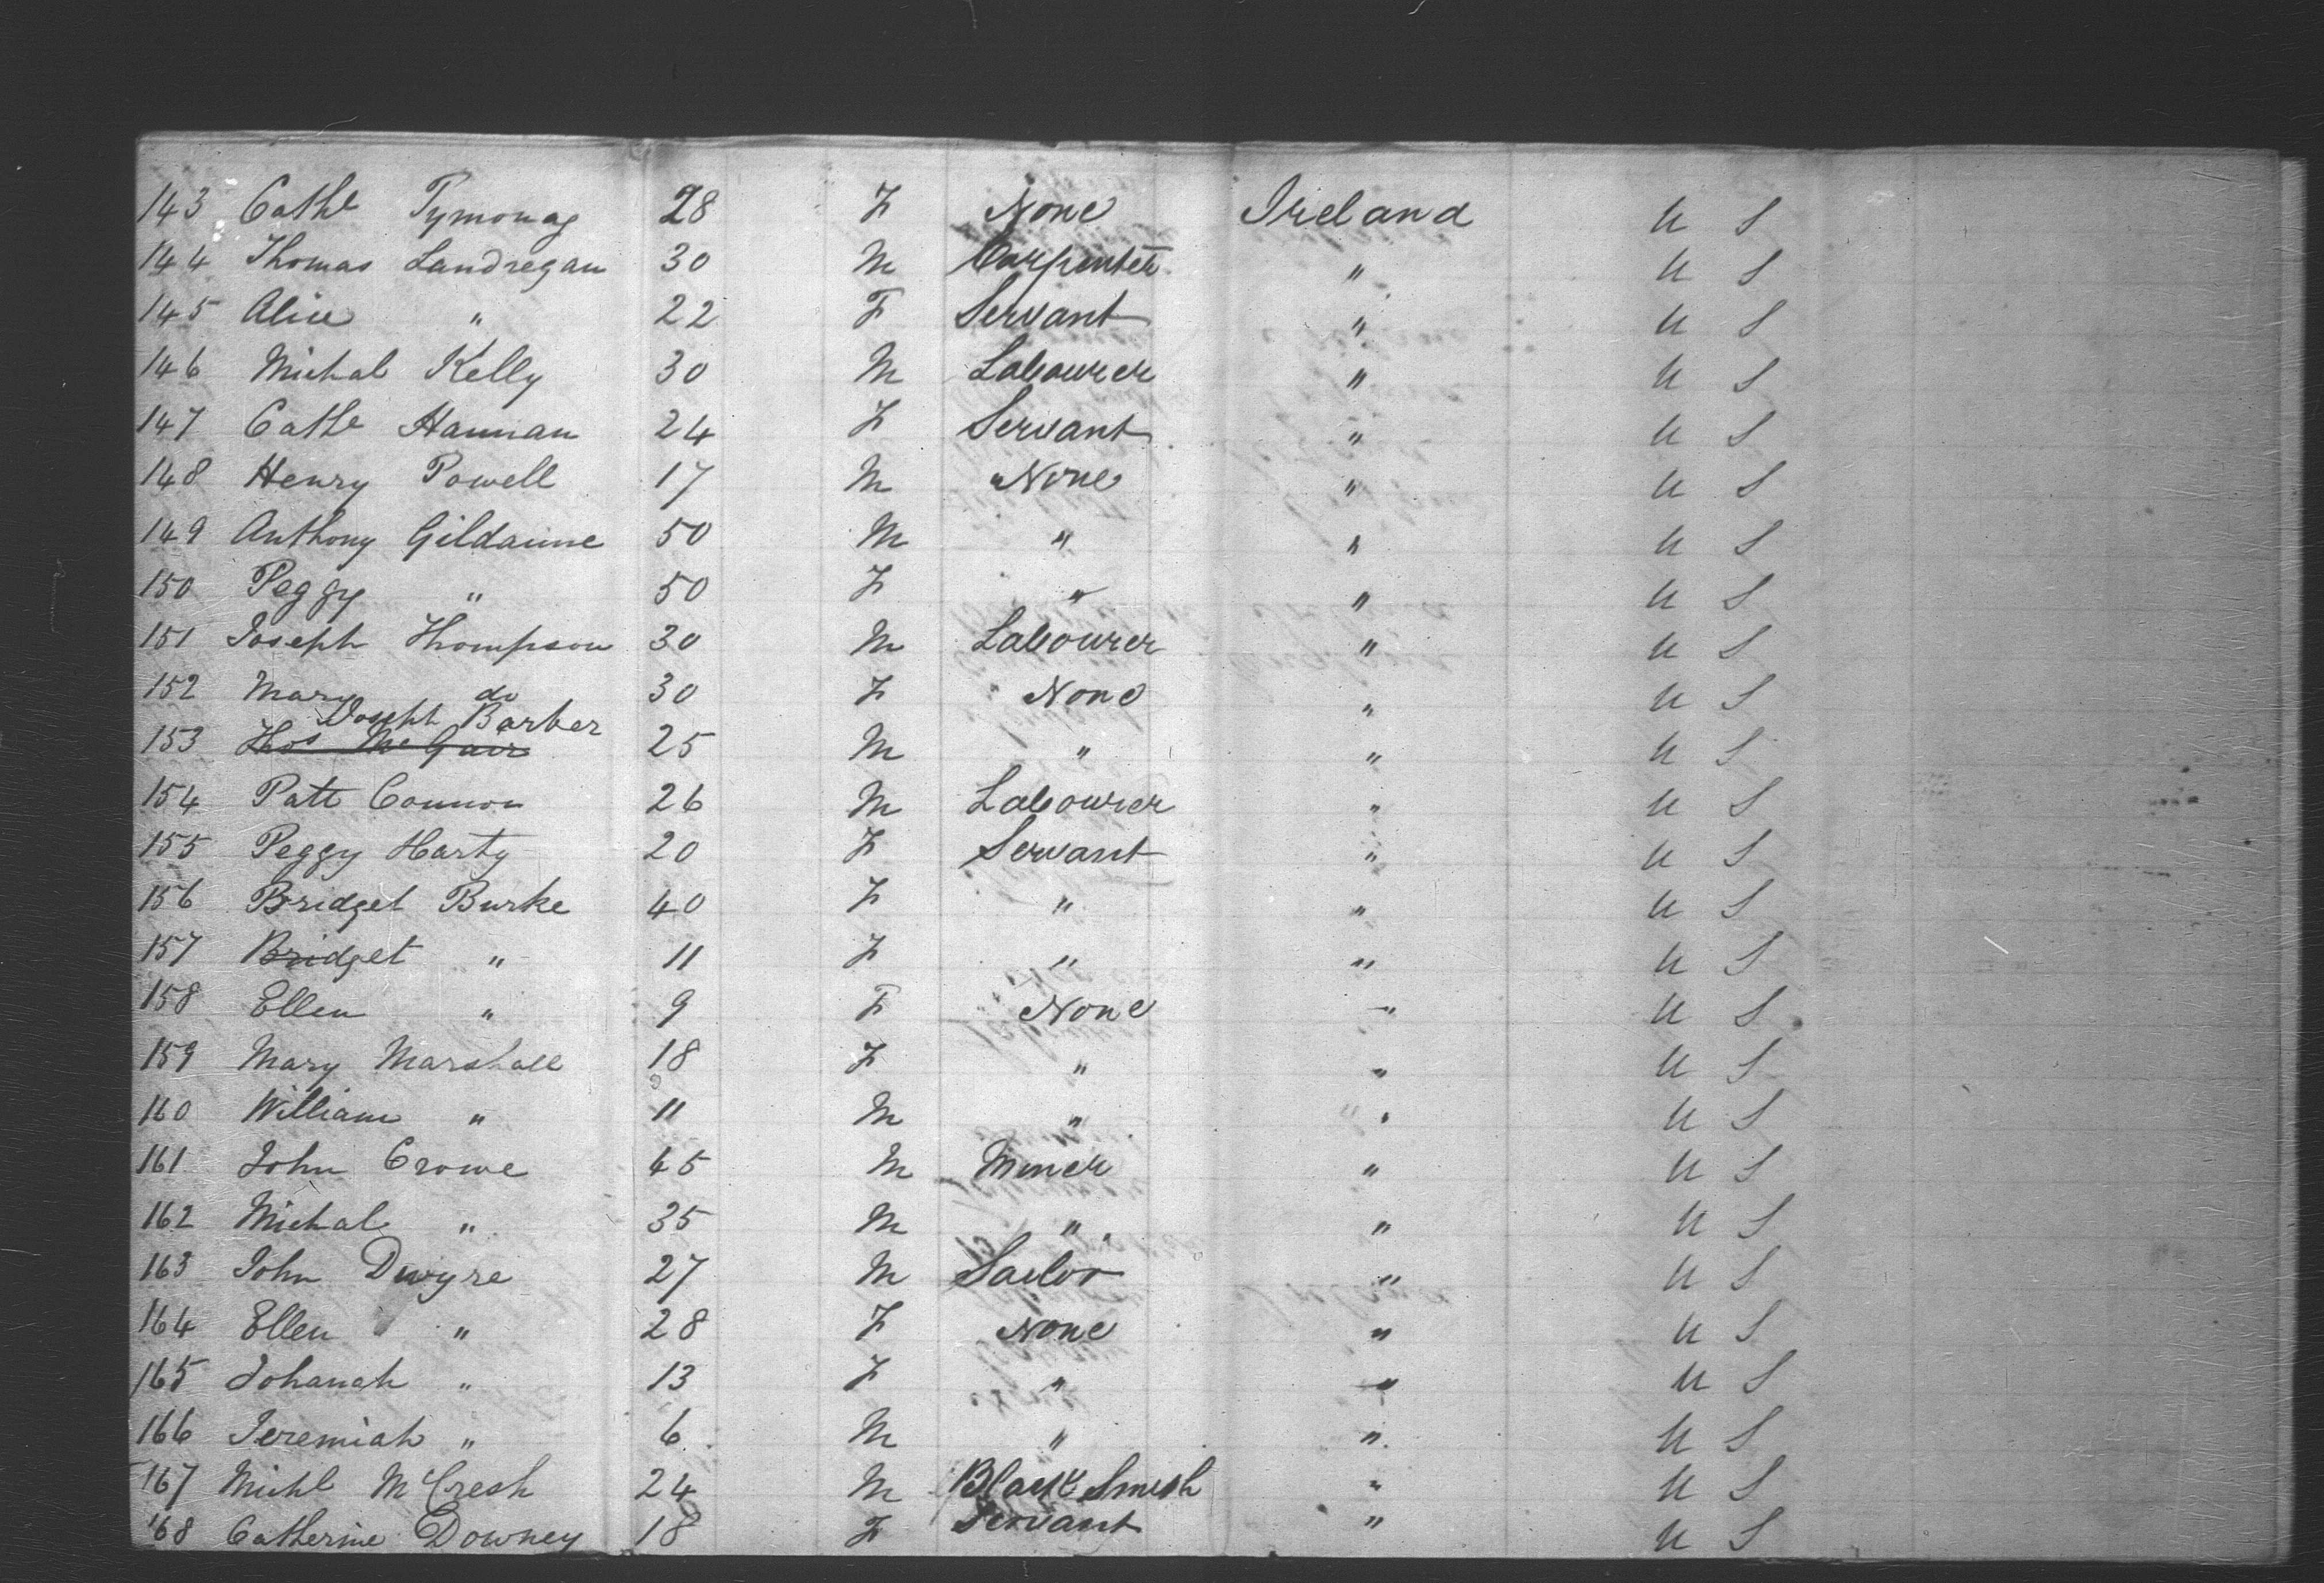 143 Cathe Tymonag 28 F None Ireland U S
144 Thomas Landregan 30 M Carpenter " U S
145 Alice " 22 F Servant " U S
146 Michal Kelly 30 M Labourer " U S
147 Cathe Hannan 24 F Servant " U S
148 Henry Powell 17 M None " U S
149 Anthony Gildaune 50 M " " U S
150 Peggy " 50 F " " U S
151 Joseph Thompson 30 M Labourer " U S
152 Mary do 30 F None " U S
Joseph Barber
153 Thos McGair 25 M " " U S
154 Patt Connon 26 M Labourer " U S
155 Peggy Harty 20 F Servant " U S
156 Bridget Burke 40 F " " U S
157 Bridget " 11 F " " U S
158 Ellen " 9 F None " U S
159 Mary Marshall 18 F " " U S
160 William " 11 M " " U S
161 John Crowe 45 M Miner " U S
162 Michal " 35 M " " U S
163 John Dwyre 27 M Sailor " U S
164 Ellen " 28 F None " U S
165 Johanah " 13 F " " U S
166 Jeremiah " 6 M " " U S
167 Michl McCresh 24 M Black Smith " U S
168 Catherine Downey 18 F Servant " U S